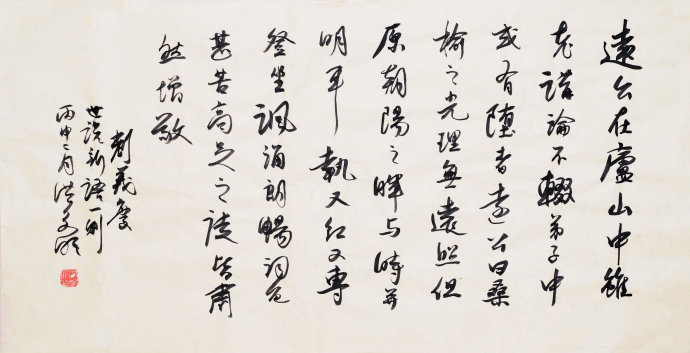 遠公在廬山中雖
老講論不輟弟子中
或有墮者遠公曰桑
榆之光理無遠照但
原朝陽之暉与時并
明耳執又红又專
登坐諷誦朗暢詞色
甚苦高足之徒皆肅
然增敬
劉義慶
世說新語一則
丙申二月洪文